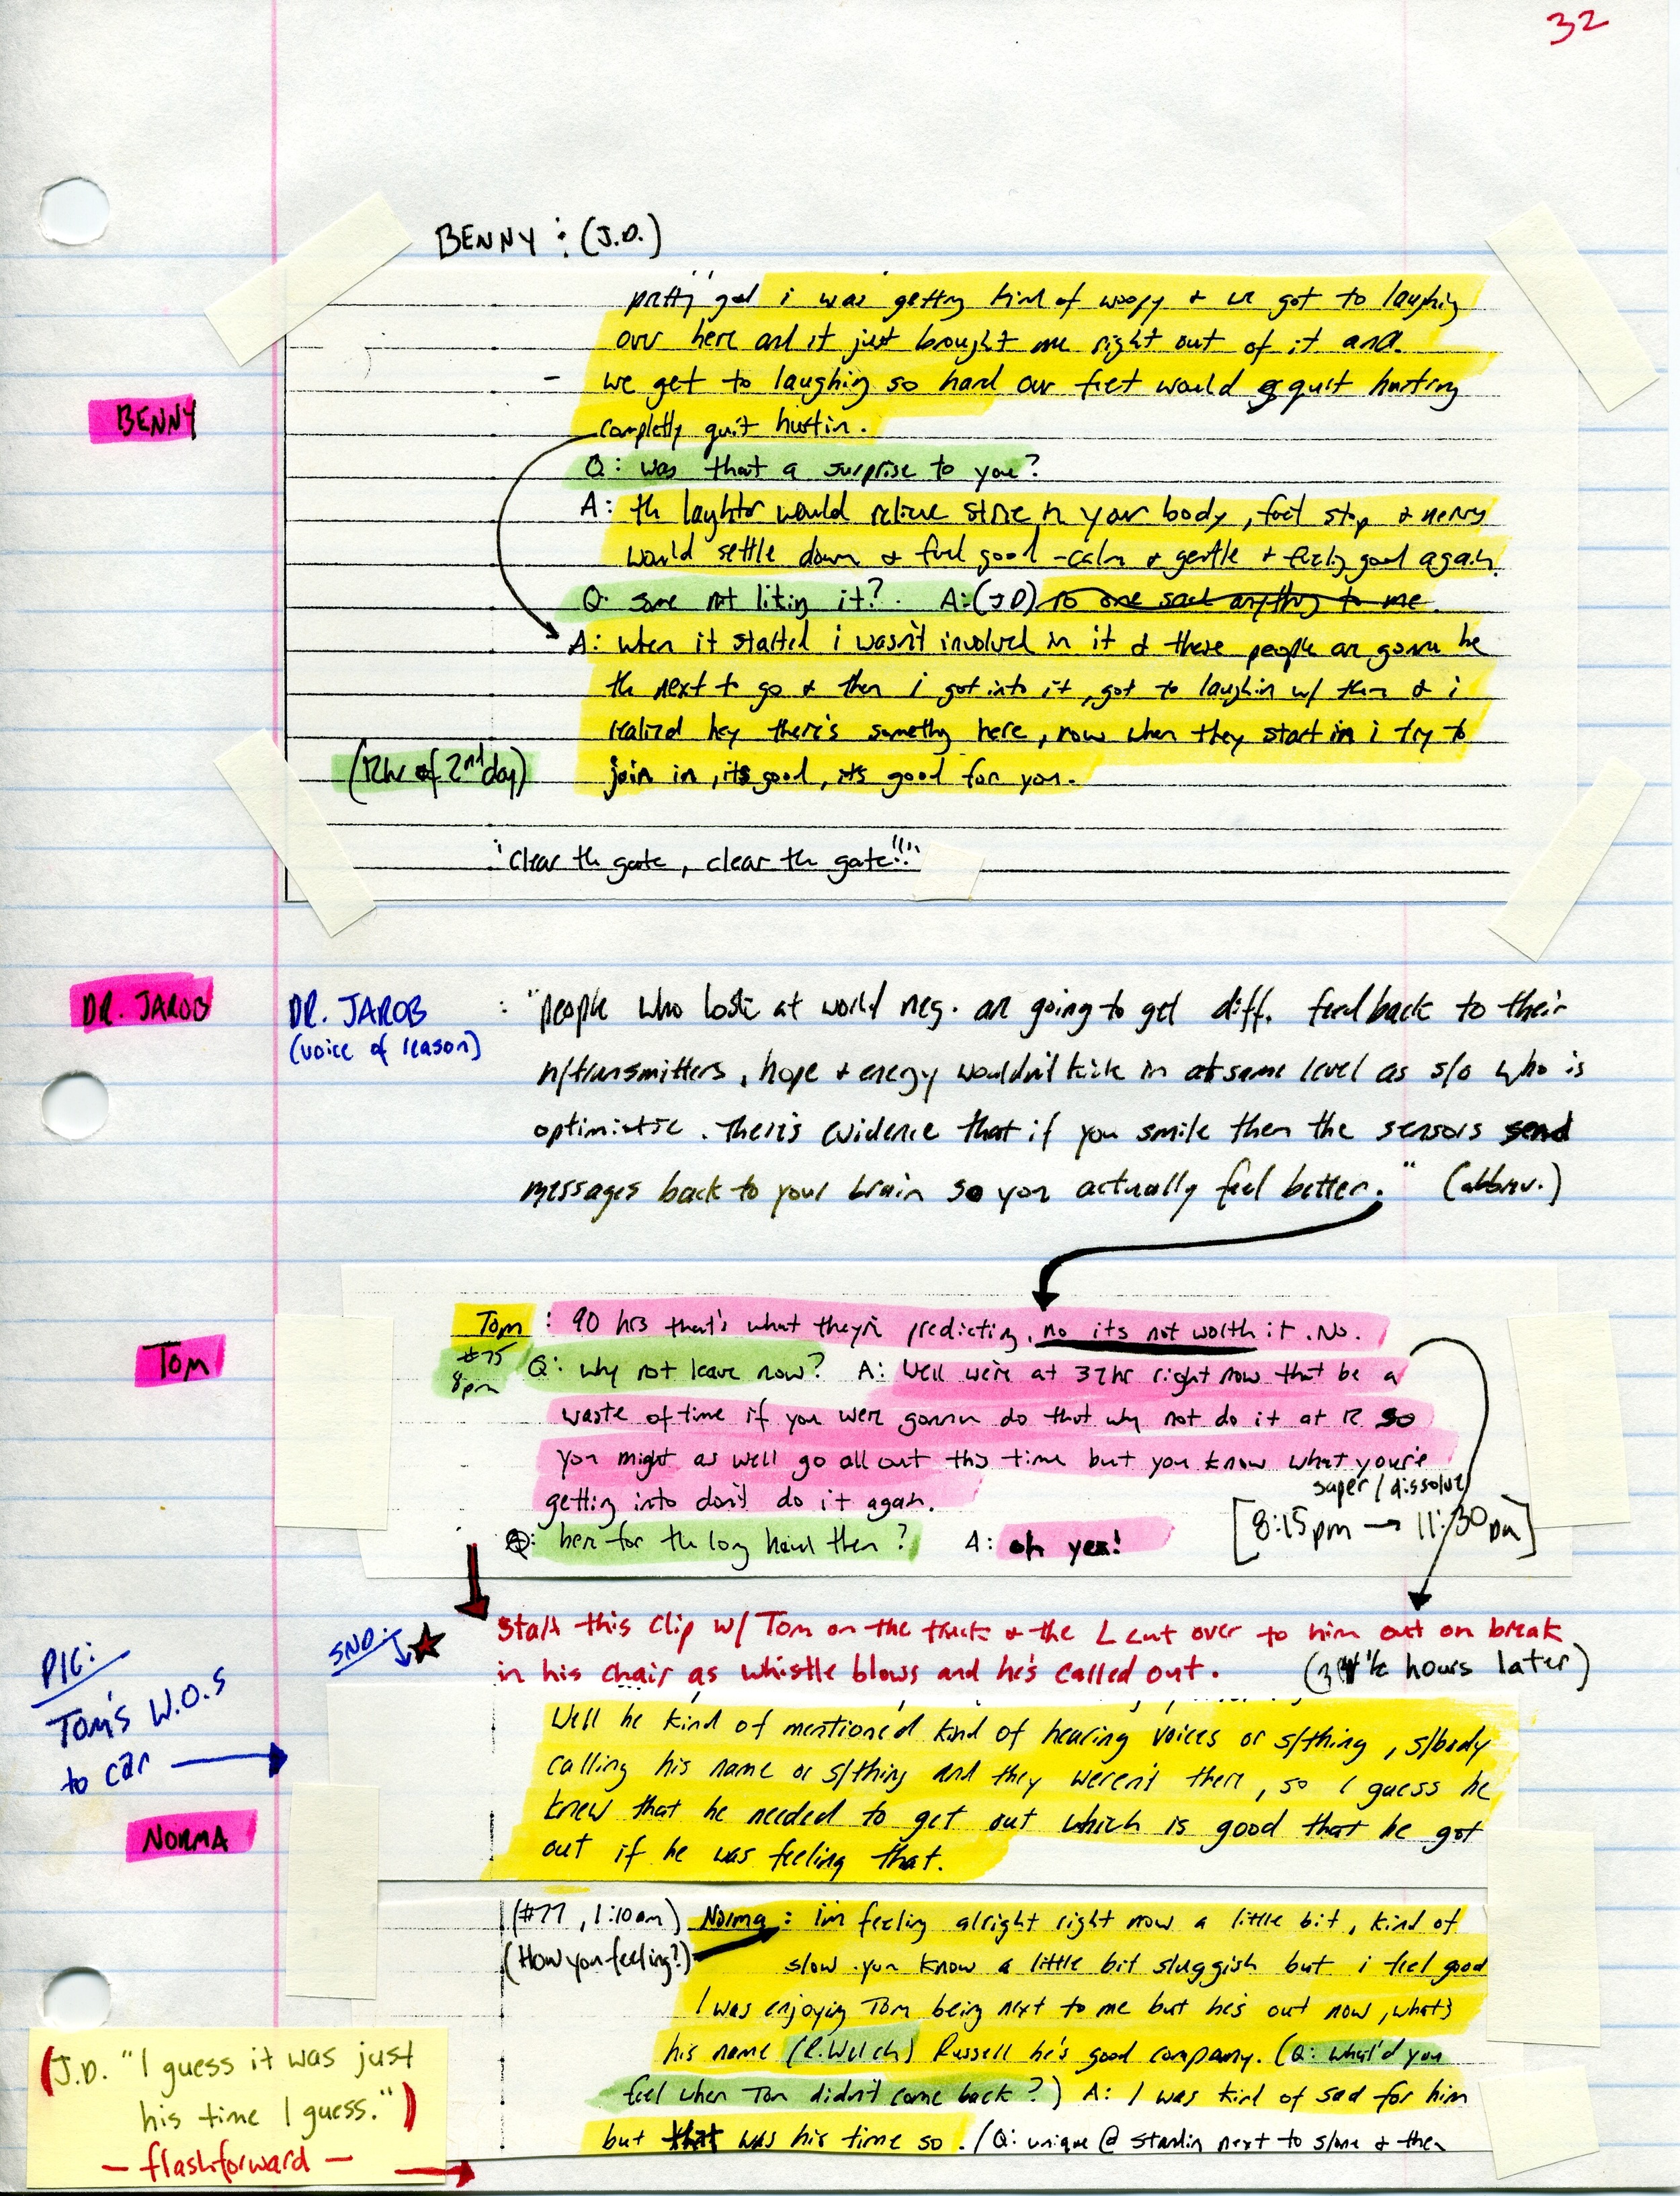 32
BENNY : (J.D.)
pretty good i was getting kind of woopy & we got to laughing
over here and it just brought me right out of it and
- we get to laughing so hard our feet would quit hurting
BENNY
completly quit hurtin.
Q: was that a surprise to you?
A: th laughter would relieve stress in your body, feet stop & nerves
would settle down & feel good - calm & gentle & feeling good again.
Q: some not liking it? A: (JD) no one said anything to me.
A: when it started i wasn't involved in it & these people are gonna be
th next to go & then i got into it, got to laughin w/ them & i
realized hey there's somethg here, now when they start in i try to
(12hr of 2nd day) join in, its good, it's good for you.
"Clear th gate, clear th gate!!"
DR. JAROB
DR. JAROB
(voice of reason)
: "people who look at world neg. are going to get diff. feedback to their
n/transmitters, hope & energy wouldn't kick in at same level as s/o who is
optimistic. There's evidence that if you smile then the sensors send
messages back to your brain so you actually feel better." (abbrev.)
Tom : 90 hrs that's what they're predicting, no its not worth it. No.
TOM
#75
8pm
Q: why not leave now? A: Well we're at 37hr right now that be a
waste of time if you were gonna do that why not do it at 12 so
you might as well go all out this time but you know what your'e
getting into don't do it again.
super/dissolve
[8:15pm → 11:30pm]
Q: here for th long haul then? A: oh yes!
SND:
Start this clip w/ Tom on the truck & the L cut over to him out on break
in his chair as whistle blows and he's called out. (3 1/2 hours later)
PIC:
TOM'S W.O.S
to car
Well he kind of mentioned kind of hearing voices or s/thing, s/body
calling his name or s/thing and they weren't there, so I guess he
knew that he needed to get out which is good that he got
NORMA
out if he was feeling that.
(#77, 1:10am) Norma : i'm feeling alright right now a little bit, kind of
(How you feeling?)
slow you know a little bit sluggish but i feel good
I was enjoying Tom being next to me but he's out now, what's
his name (R. Welch) Russell he's good company. (Q: what'd you
feel when Tom didn't come back?) A: I was kind of sad for him
but that was his time so. (Q: unique @ standin next to s/one & then
(J.D. "I guess it was just
his time I guess.")
- flashforward -